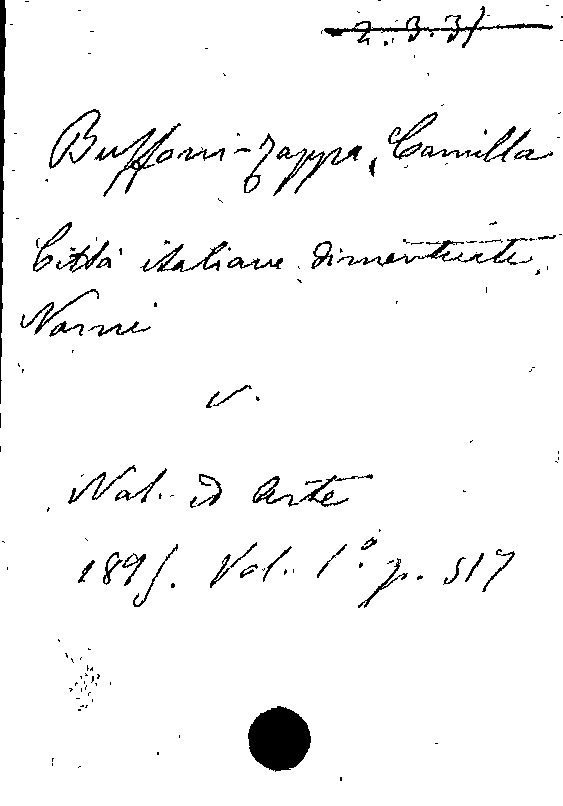 2.3.31
Buffoni-Zappa, Camilla
Città italiane dimenticate.
Narni
v.
Nat. ed Arte
1895. Vol. 1º p. 517